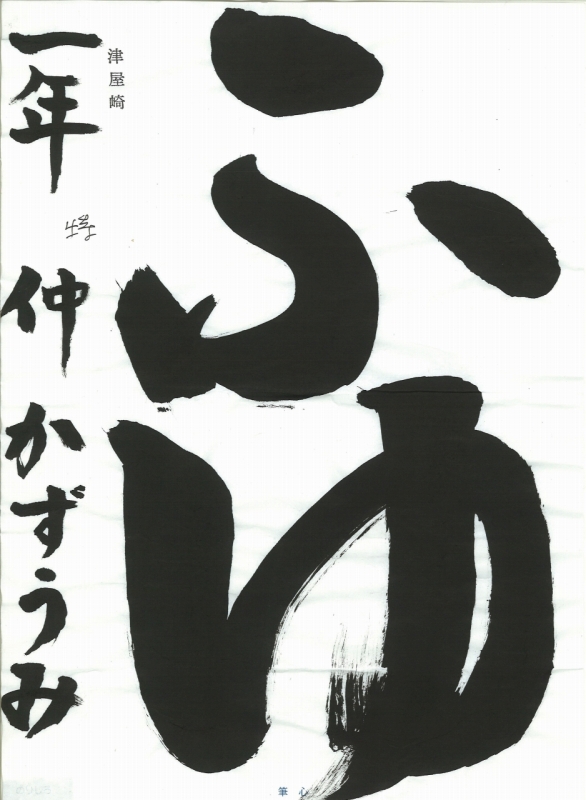 ふゆ
津屋崎
一年 仲 かずうみ
特
筆心